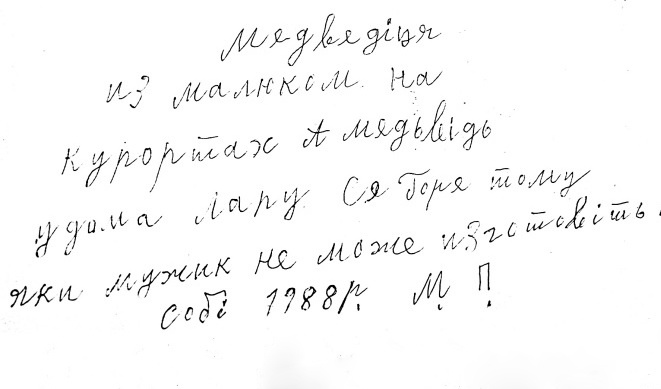 Медведіця
из малюком на
курортах А медьвідь
удома лапу себоре тому
яки мужик не може изготовіть.
собі 1988р. М. П.